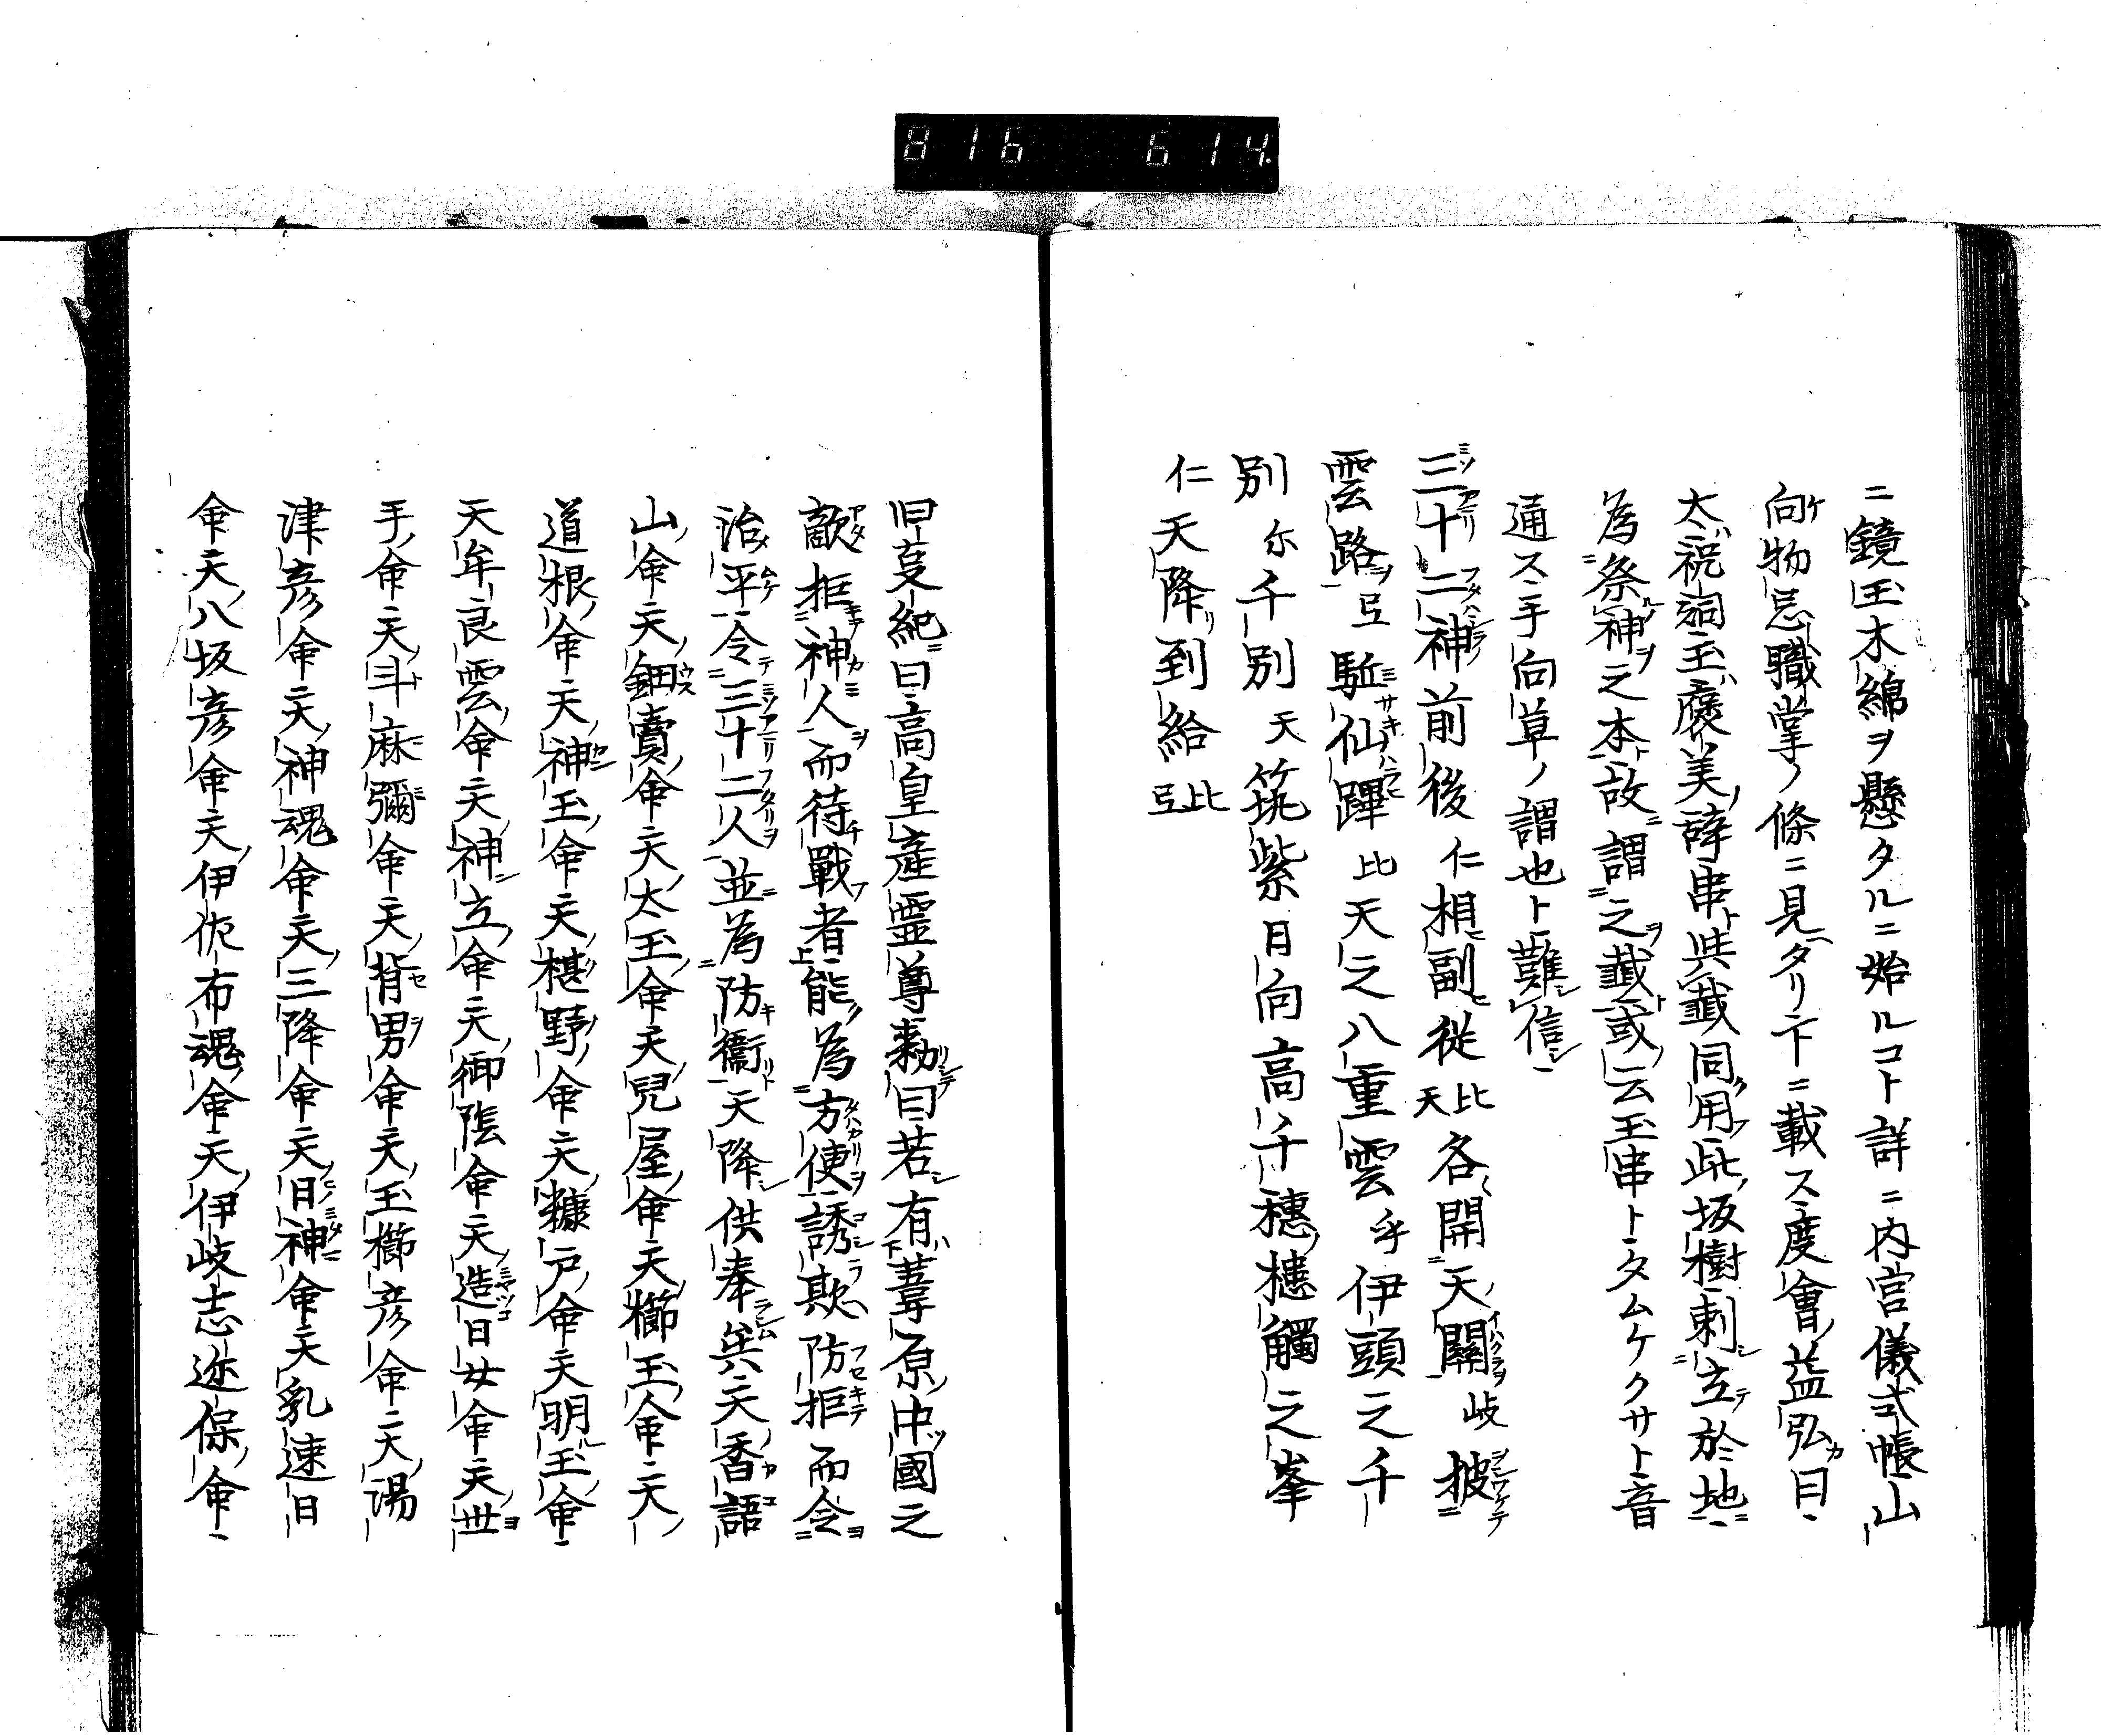 816 614
ニ鏡玉木綿ヲ懸タルニ始ルコト詳ニ内宮儀式帳山
向物忌職掌ノ條ニ見タリ下ニ載ス度會益弘曰
太祝詞玉褒美辞串共籤同用此坂樹刺立於地
為祭神之本故謂之籤或云玉串トタムケクサト音
通ス手向草ノ謂也ト難信
三十二神前後仁相副従比天各開天關岐披
雲路弖駈仙蹕比天之八重雲乎伊頭之千
別尓千別天筑紫日向高千穂槵觸之峯
仁天降到給比弖
旧事紀曰高皇産霊尊勅曰若有葦原中國之
敵拒神人而待戰者能為方便誘欺防拒而令
治平令三十二人並為防衞天降供奉矣天香語
山命天鈿賣命天太玉命天兒屋命天櫛玉命天
道根命天神玉命天椹野命天糠戸命天明玉命
天牟良雲命天神立命天御陰命天造日女命天世
手命天斗麻彌命天背男命天玉櫛彦命天湯
津彦命天神魂命天三降命天日神命天乳速日
命天八坂彦命天伊佐布魂命天伊岐志迩保命